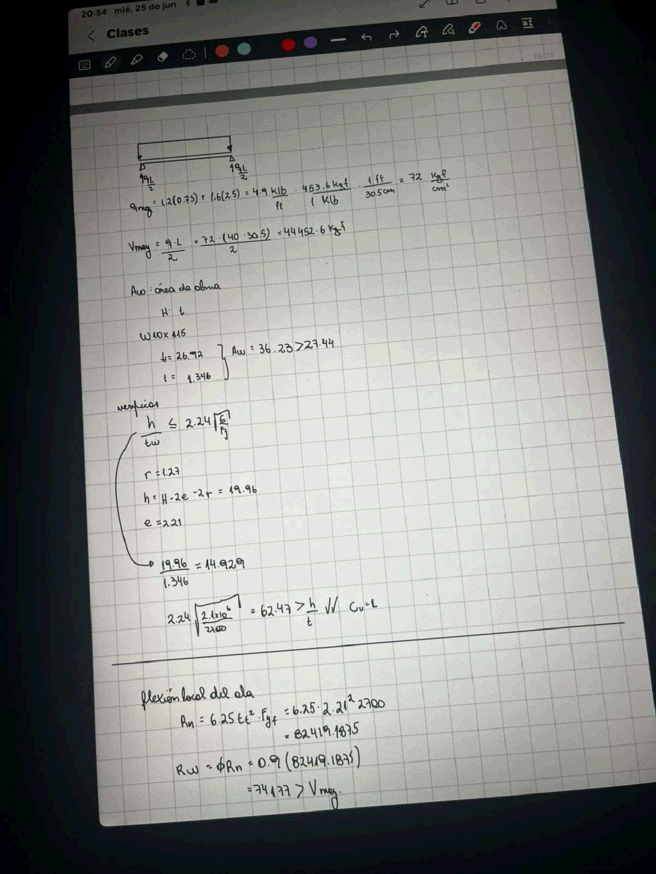 20:54 mié, 25 de jun
< Clases
qL/2 qL/2
qmay = 1.2(0.75) + 1.6(2.5) = 4.9 Klb/ft · 453.6 kgf/1 Klb · 1 ft/30.5cm = 72 Kgf/cm²
Vmay = q·L/2 = 72·(40·30.5)/2 = 44452.6 Kgf
Aw: área da alma
H· t
W10x115
h = 26.92
t = 1.346
Aw = 36.23 > 27.44
verificar
h/tw ≤ 2.24 √(E/Fy)
r = 1.27
h = H - 2e - 2r = 19.96
e = 2.21
19.96/1.346 = 14.829
2.24 √(2.1x10⁶/2700) = 62.47 > h/t √√ Cv=1
flexión local del ala
Rn = 6.25 tf² · Fyf = 6.25 · 2.21² 2700
= 82419.1875
Rw = ϕRn = 0.9 (82419.1875)
= 74177 > Vmay.